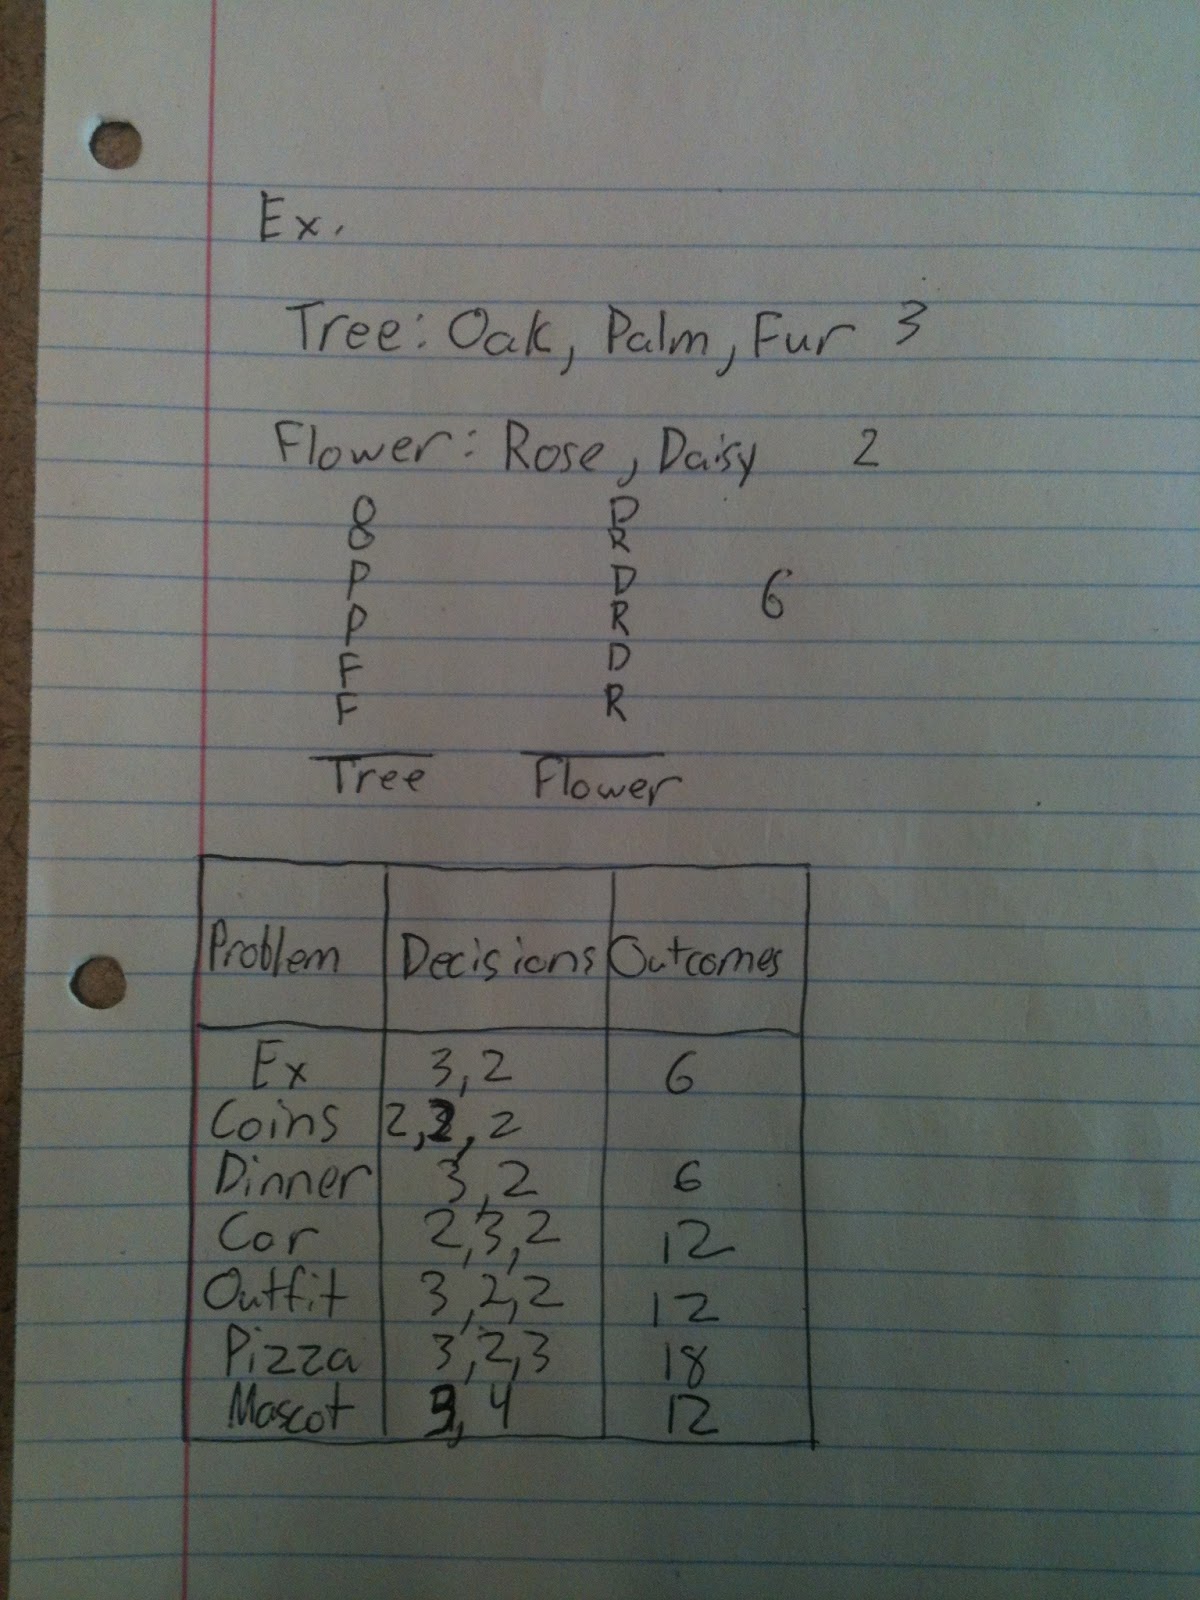 Ex.
Tree: Oak, Palm, Fur 3
Flower: Rose, Daisy 2
O D
O R
P D
P R 6
F D
F R
Tree Flower
Problem Decisions Outcomes
Ex 3,2 6
Coins 2,2,2
Dinner 3,2 6
Car 2,3,2 12
Outfit 3,2,2 12
Pizza 3,2,3 18
Mascot 3,4 12